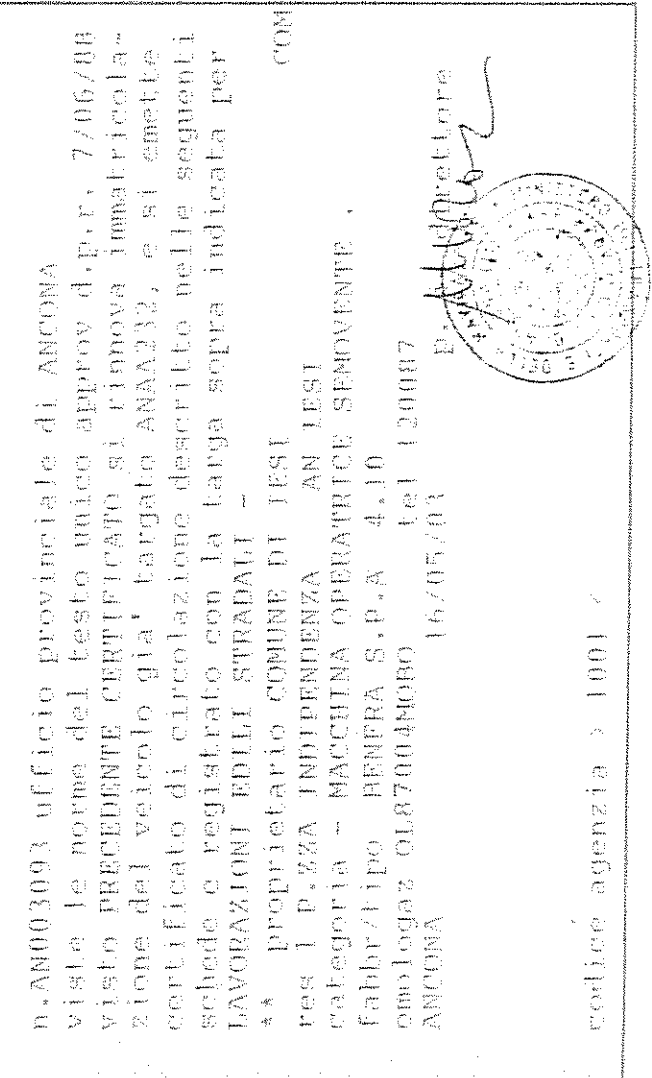 n.AN003093 ufficio provinciale di ANCONA
viste le norme del testo unico approv d.p.r. 7/06/88
visto PRECEDENTE CERTIFICATO si rinnova immatricola-
zione del veicolo gia' targato ANAA232, e si emette
certificato di circolazione descritto nelle seguenti
schede e registrato con la targa sopra indicata per
LAVORAZIONI EDILI STRADALI - COM
** proprietario COMUNE DI IESI
res 1 P.ZZA INDIPENDENZA AN IESI
categoria - MACCHINA OPERATRICE SEMOVENTE .
fabbr/tipo BENFRA S.P.A 4.10
omologaz OL87004MOBO tel 130087
ANCONA 16/05/03 direttore
codice agenzia > 1001